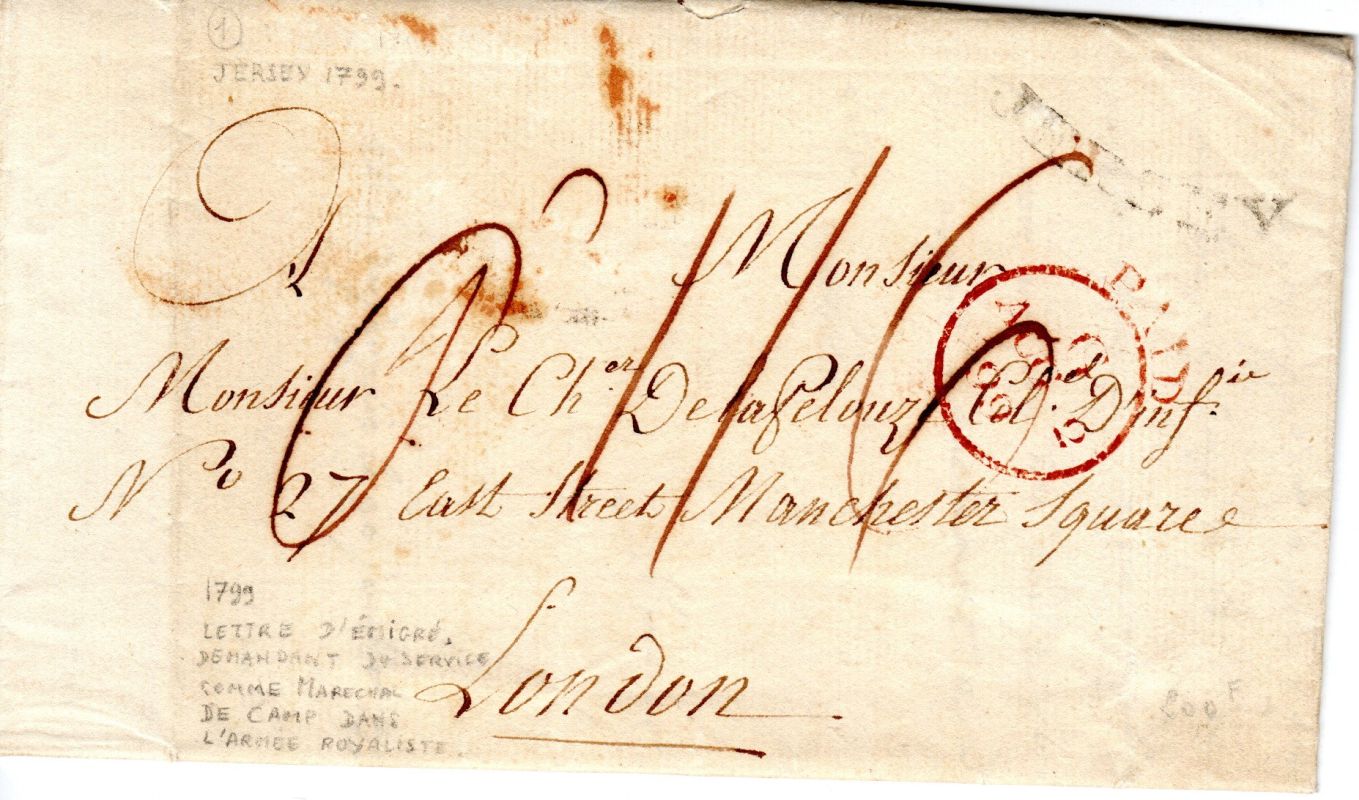 1
JERSEY 1799.
JERSEY
A Monsieur
PAID
Monsieur Le Cher Delapelouze Colel. D'infie
No 27 East Street Manchester Square
London
1799
LETTRE D'ÉMIGRÉ.
DEMANDANT DU SERVICE
COMME MARECHAL
DE CAMP DANS
L'ARMEE ROYALISTE.